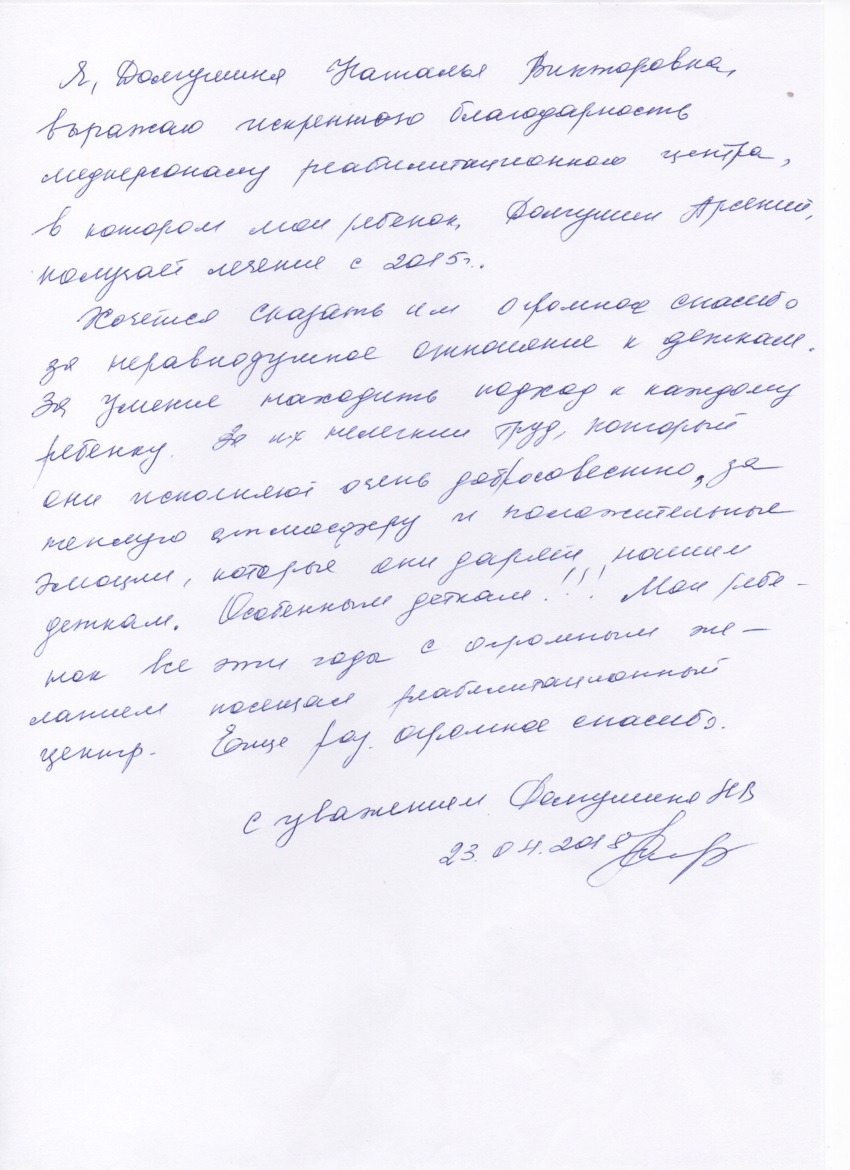 Я, Долгушина Наталья Викторовна,
выражаю искреннюю благодарность
медперсоналу реабилитационного центра,
в котором мой ребенок, Долгушин Арсений,
получает лечение с 2015г..
Хочется сказать им огромное спасибо
за неравнодушное отношение к деткам.
За умение находить подход к каждому
ребенку. За их нелегкий труд, который
они исполняют очень добросовестно, за
теплую атмосферу и положительные
эмоции, которые они дарят нашим
деткам. Особенным деткам!!! Мой ребе-
нок все эти годы с огромным же-
ланием посещал реабилитационный
центр. Еще раз огромное спасибо.
С уважением Долгушина НВ
23.04.2018